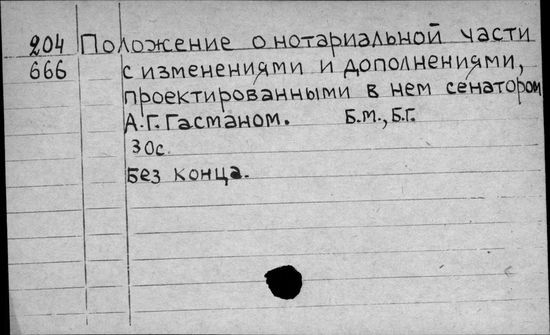 204 Положение о нотариальной части
666 с изменениями и дополнениями,
проектированными в нем сенатором
А.Г. Гасманом. Б.м., Б.г.
30с.
Без конца.